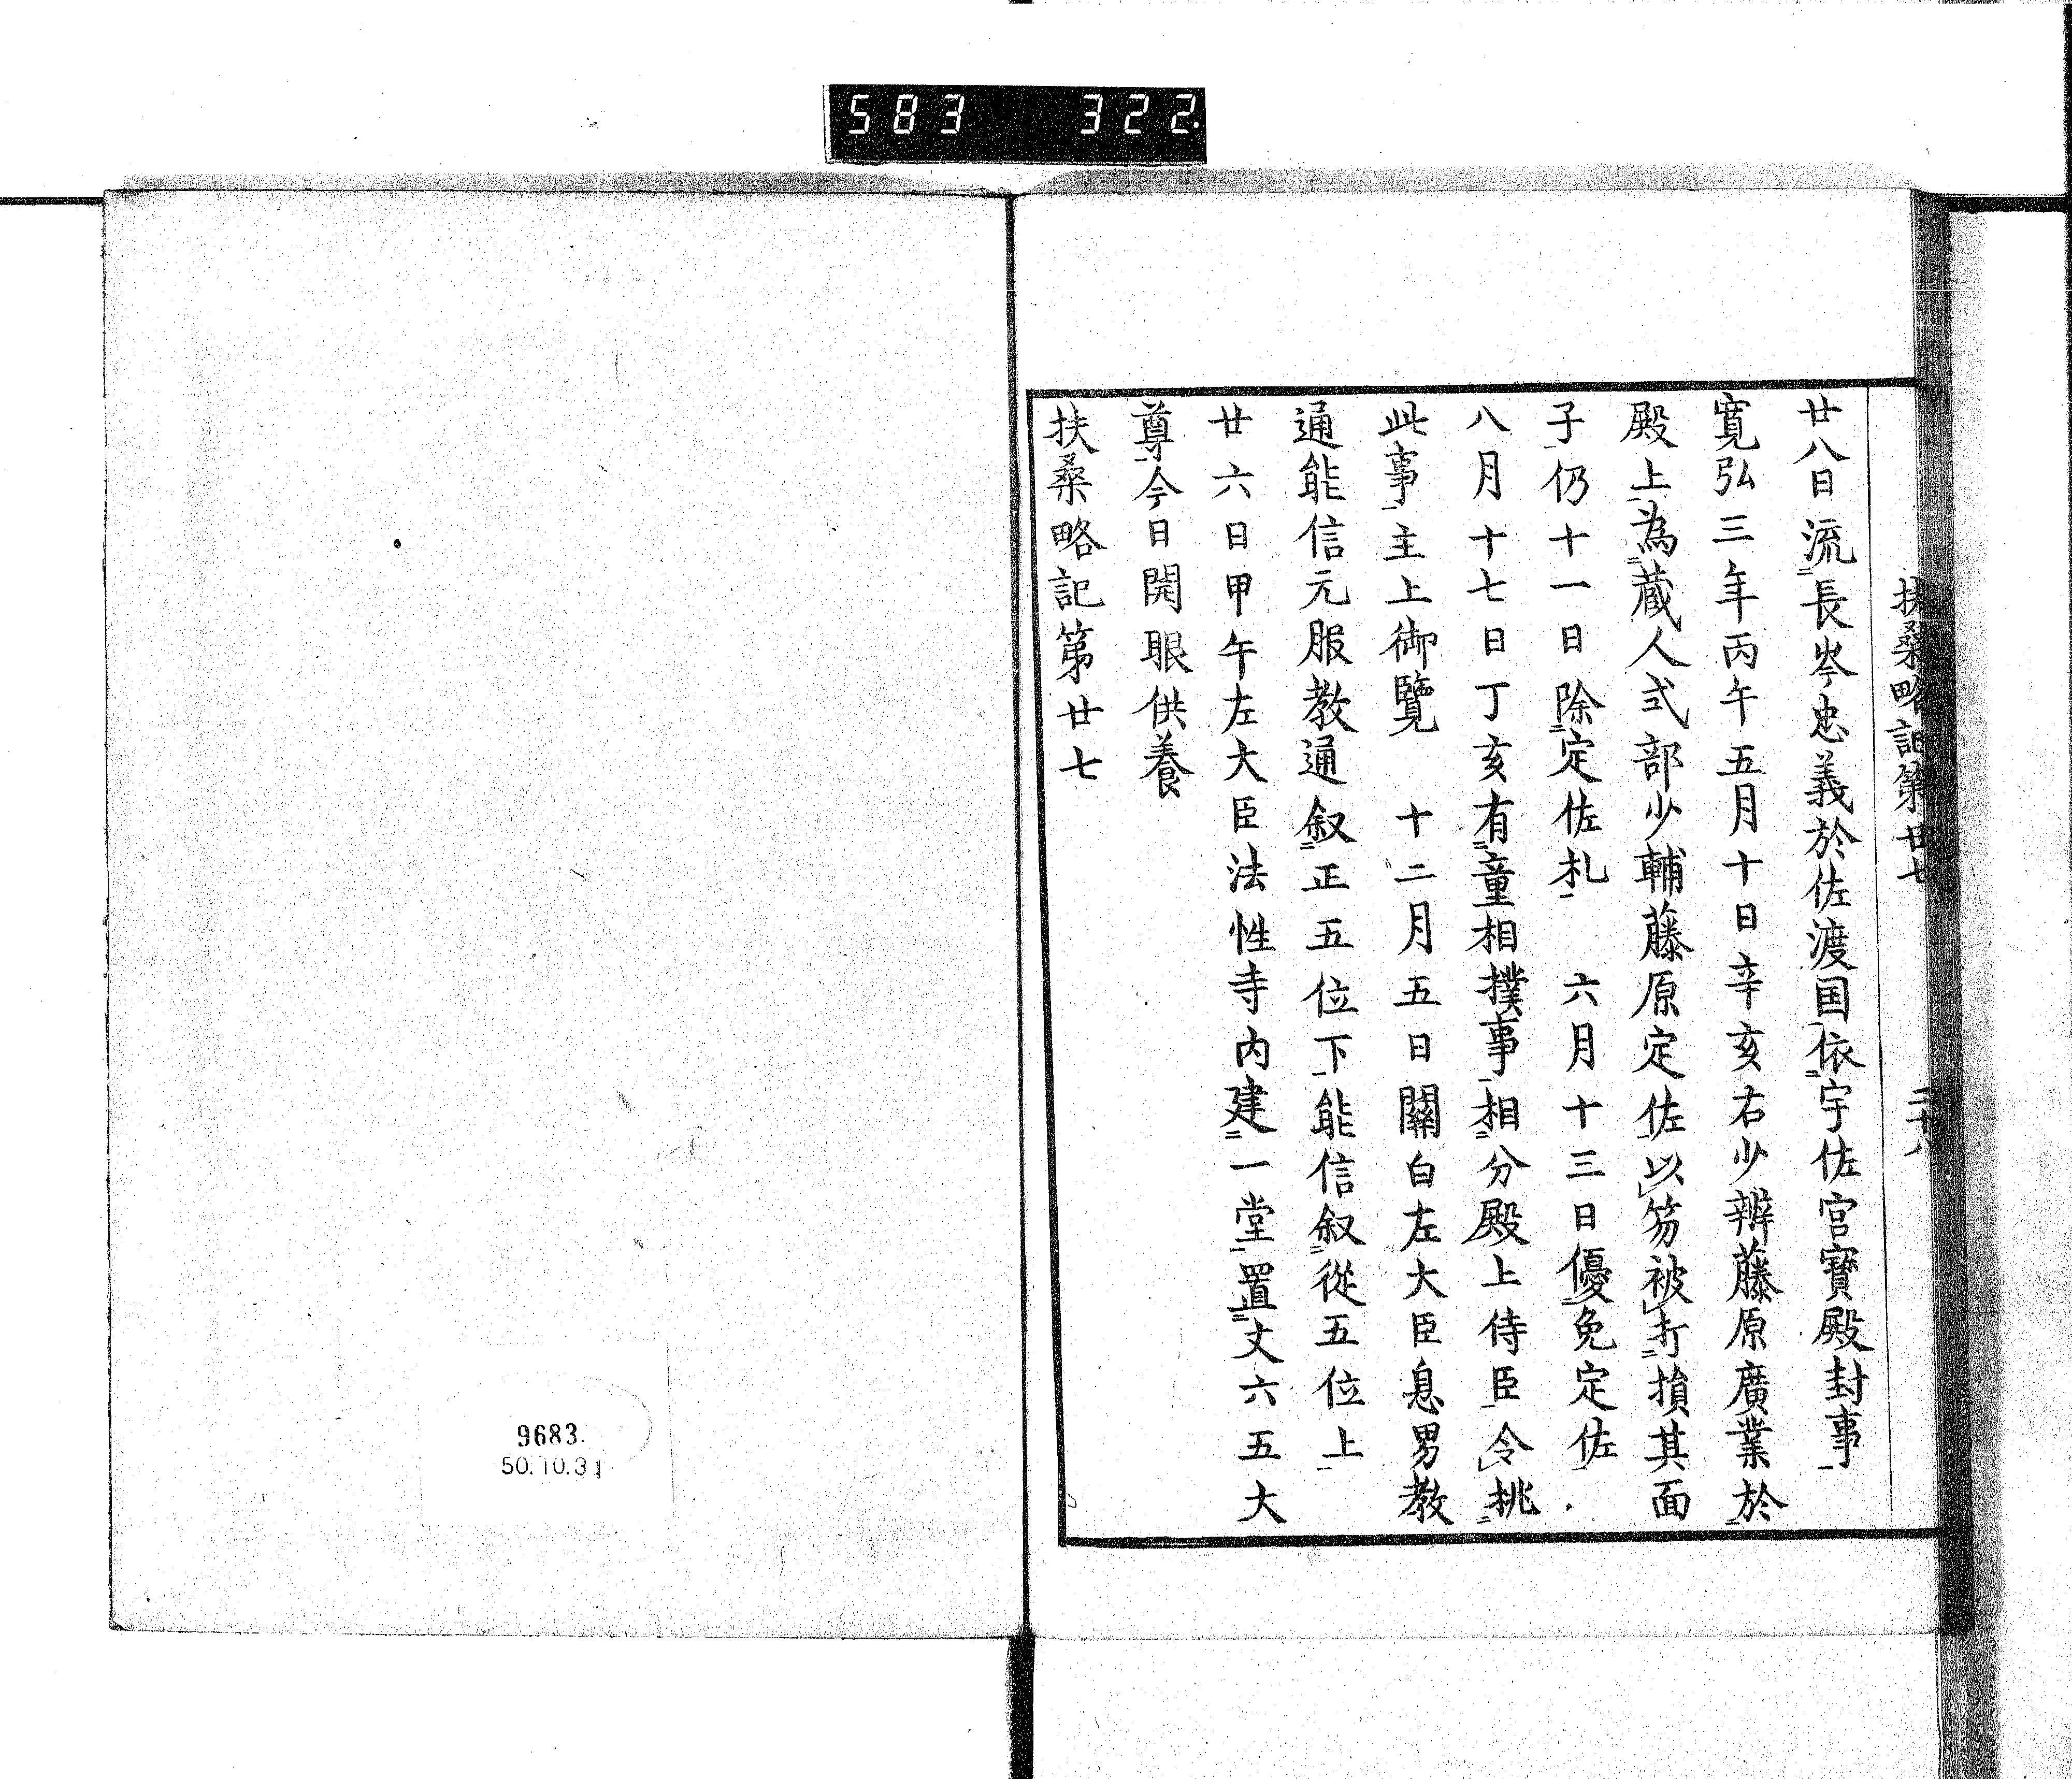 583 322.
扶桑略記第廿七 二十八
廿八日流長岑忠義於佐渡国依宇佐宮寶殿封事
寛弘三年丙午五月十日辛亥右少辨藤原廣業於
殿上為蔵人式部少輔藤原定佐以笏被打損其面
子仍十一日除定佐札 六月十三日優免定佐
八月十七日丁亥有童相撲事相分殿上侍臣令挑
此事主上御覽 十二月五日關白左大臣息男教
通能信元服教通叙正五位下能信叙從五位上
廿六日甲午左大臣法性寺内建一堂置丈六五大
尊今日開眼供養
扶桑略記第廿七
9683.
50.10.31